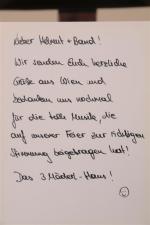 Lieber Helmut + Band!
Wir senden Euch herzliche
Grüße aus Wien und
bedanken uns nochmal
für die tolle Musik, die
auf unserer Feier zur richtigen
Stimmung beigetragen hat!
Das 3 Mäderl-Haus!